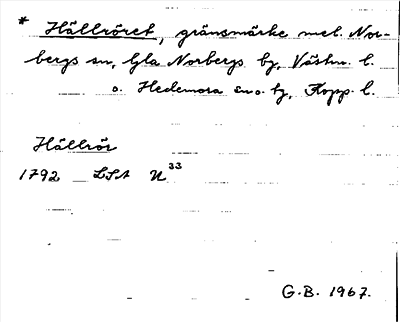 * Hällröret, gränsmärke mel. Nor-
bergs sn, Gla Norbergs by, Västm. l.
o. Hedemora sn o. by, Kopp. l.
Hällrör
1792 LSA U³³
G.B. 1967.